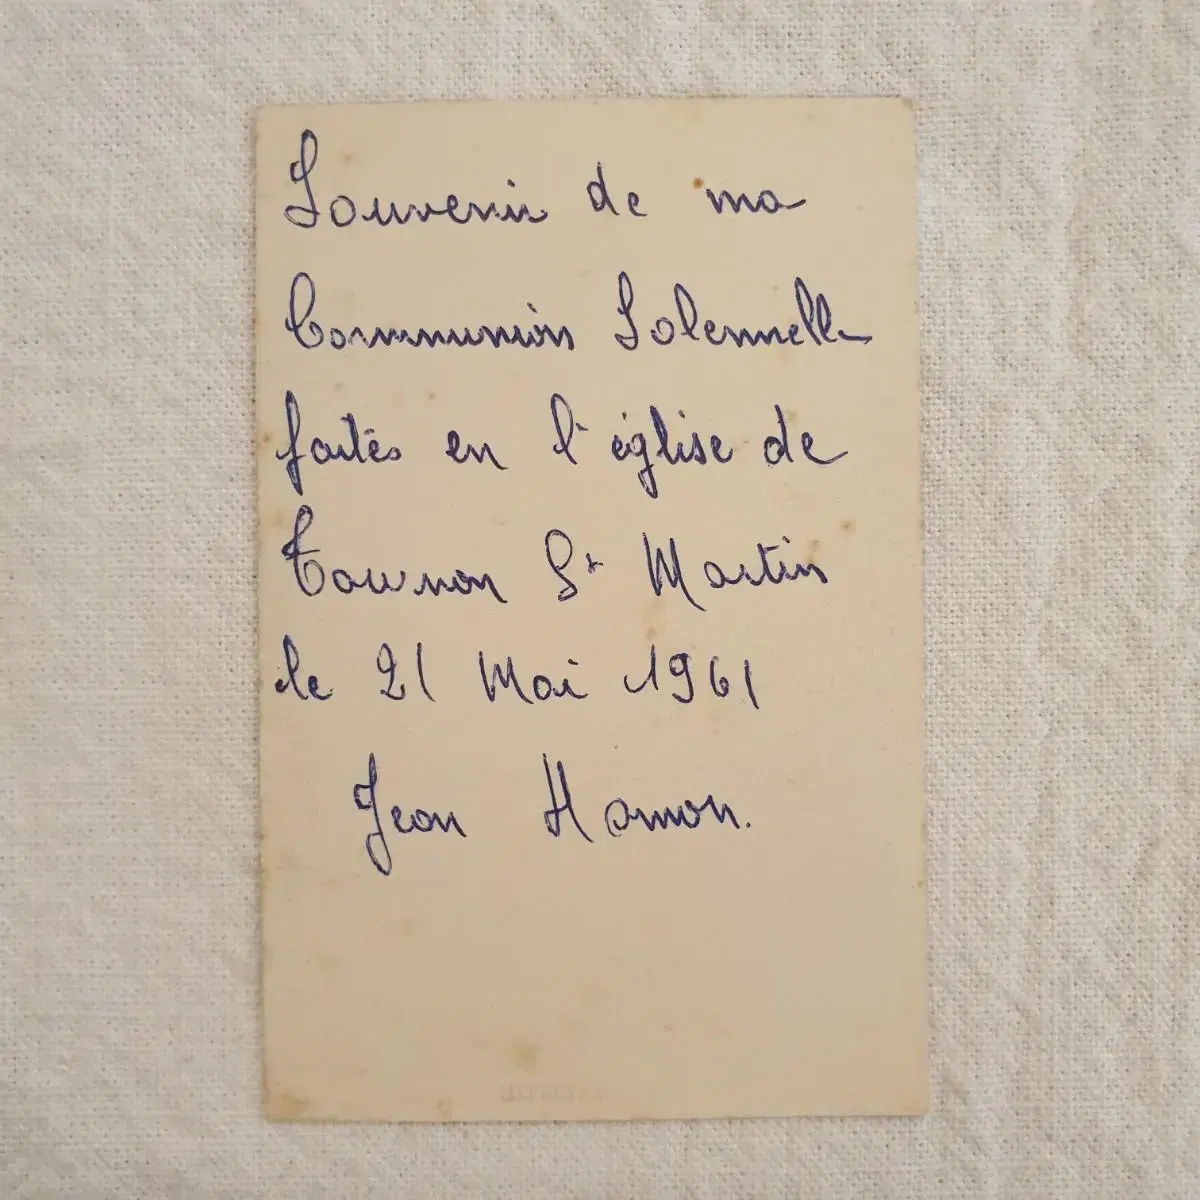 Souvenir de ma
Communion Solennelle
faites en l'église de
Tournon St Martin
le 21 Mai 1961
Jean Hamon.